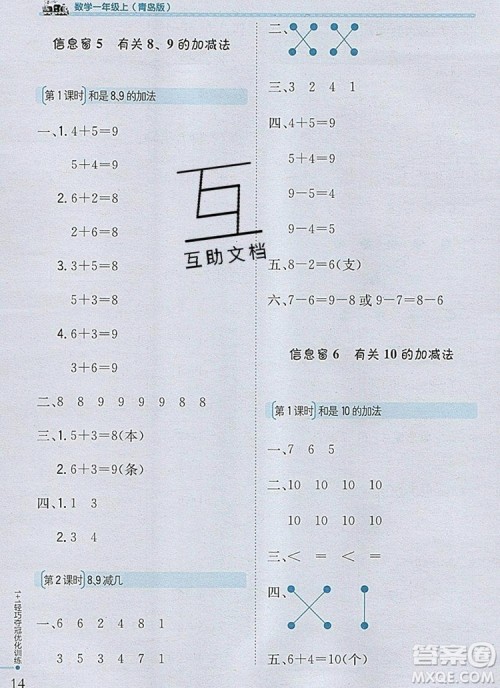 数学一年级上（青岛版）
信息窗5 有关8、9的加减法
第1课时 和是8,9的加法
一、1. 4+5=9
5+4=9
2. 6+2=8
2+6=8
3. 3+5=8
5+3=8
4. 6+3=9
3+6=9
二、8 8 9 9 9 9 8 8
三、1. 5+3=8(本)
2. 6+3=9(条)
四、1. 1 3
2. 3 4
第2课时 8,9减几
一、6 6 4 8 8 1
3 5 3 4 7 1
1+1轻巧夺冠优化训练
14
二、
三、8 2 4 1
四、4+5=9
5+4=9
9-5=4
9-4=5
五、8-2=6(支)
六、7-6=9-8 或 9-7=8-6
信息窗6 有关10的加减法
第1课时 和是10的加法
一、7 6 5
二、10 10 10 10
10 10 10 10
三、< = < =
四、
五、6+4=10(个)
互
互助文档
答案圈
MXQE.COM